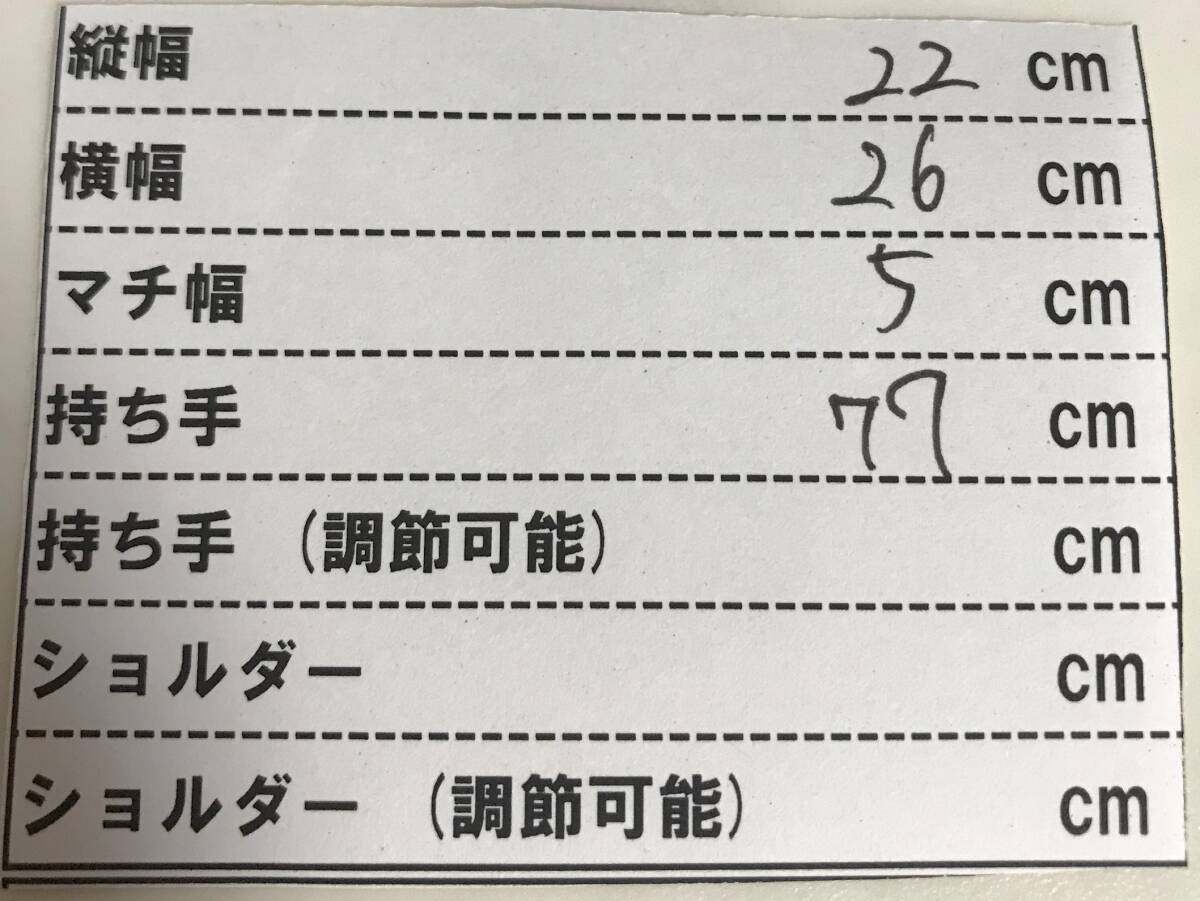 縦幅 22 cm
横幅 26 cm
マチ幅 5 cm
持ち手 77 cm
持ち手 (調節可能) cm
ショルダー cm
ショルダー (調節可能) cm